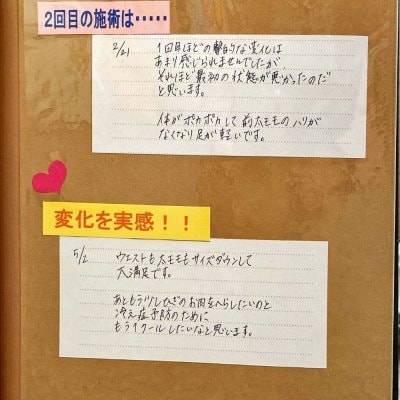 2回目の施術は・・・・・
2/21 1回目ほどの劇的な変化は
あまり感じられませんでしたが
それほど最初の状態が悪かったのだ
と思います。
体がポカポカして前太モモのハリが
なくなり足が軽いです。
変化を実感！！
5/2 ウエストも太モモもサイズダウンして
大満足です。
あともう少しひざのお肉をへらしたいのと
冷え症予防のために
もう1クールしたいなと思います。